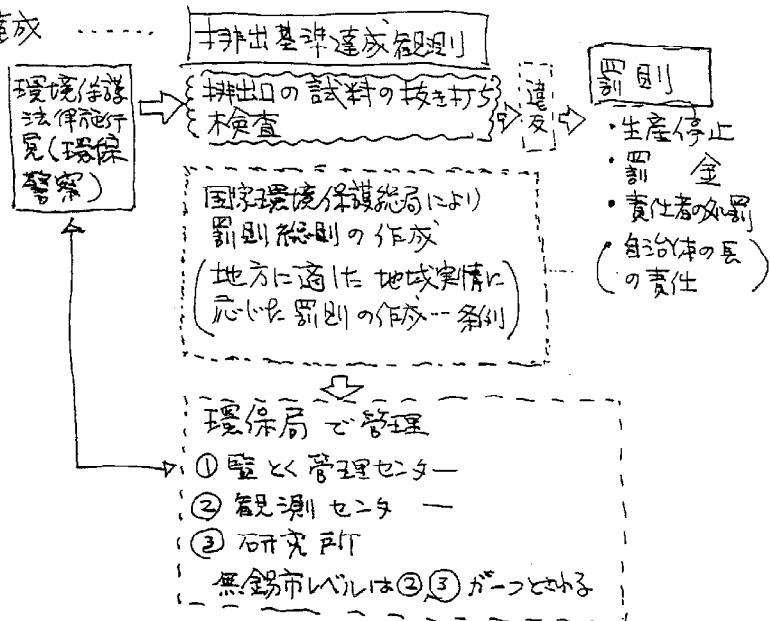 達成 ……
排出基準達成観則
環境保護
法律施行
員(環保
警察)
排出口の試料の抜き打ち
検査
違反
罰則
・生産停止
・罰 金
・責任者の処罰
(自治体の長
の責任)
国家環境保護総局により
罰則総則の作成
(地方に適した地域実情に
応じた罰則の作成…条例)
環保局で管理
① 監とく管理センター
② 観測センター
③ 研究所
無錫市レベルは②③が一つとされる